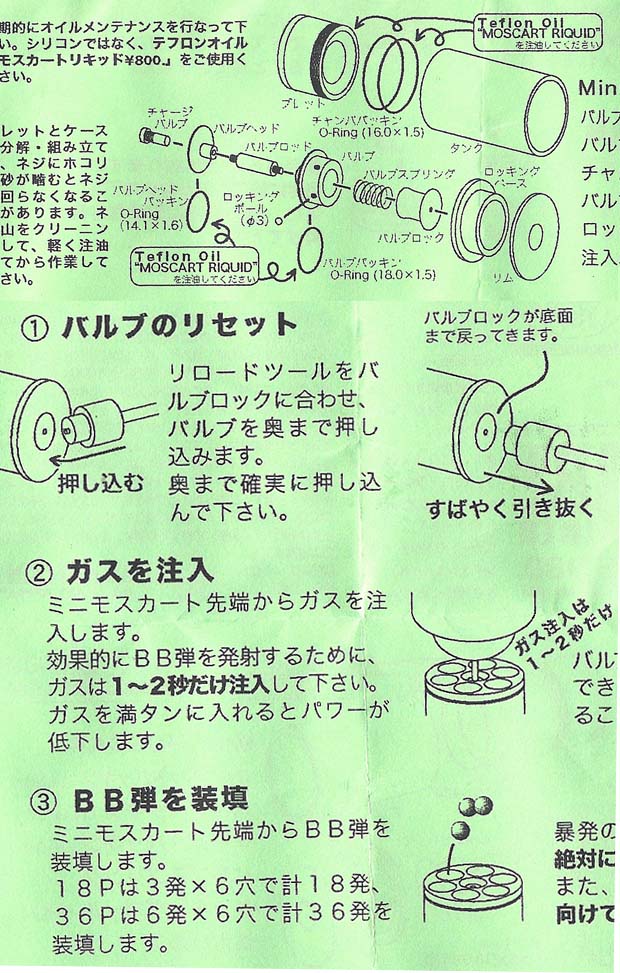 期的にオイルメンテナンスを行なって下
い。シリコンではなく、テフロンオイル
モスカートリキッド¥800.』をご使用く
さい。
Teflon Oil
"MOSCART RIQUID"
を注油してください
ブレット
チャンバパッキン
O-Ring (16.0×1.5)
タンク
Min
バルブ
バル
チャ
バル
ロッ
注入
レットとケース
分解・組み立て
、ネジにホコリ
砂が噛むとネジ
回らなくなるこ
があります。ネ
山をクリーニン
して、軽く注油
てから作業して
さい。
チャージ
バルブ
バルブヘッド
バルブロッド
バルブ
バルブスプリング
ロッキング
ベース
バルブヘッド
パッキン
O-Ring
(14.1×1.6)
ロッキング
ボール
(φ3)
バルブロック
Teflon Oil
"MOSCART RIQUID"
を注油してください
バルブパッキン
O-Ring (18.0×1.5)
リム
① バルブのリセット
リロードツールをバ
ルブロックに合わせ、
バルブを奥まで押し
込みます。
奥まで確実に押し込
んで下さい。
押し込む
バルブロックが底面
まで戻ってきます。
すばやく引き抜く
② ガスを注入
ミニモスカート先端からガスを注
入します。
効果的にＢＢ弾を発射するために、
ガスは1〜2秒だけ注入して下さい。
ガスを満タンに入れるとパワーが
低下します。
ガス注入は
1〜2秒だけ
バル
でき
るこ
③ ＢＢ弾を装填
ミニモスカート先端からＢＢ弾を
装填します。
１８Ｐは３発×６穴で計１８発、
３６Ｐは６発×６穴で計３６発を
装填します。
暴発の
絶対に
また、
向けて